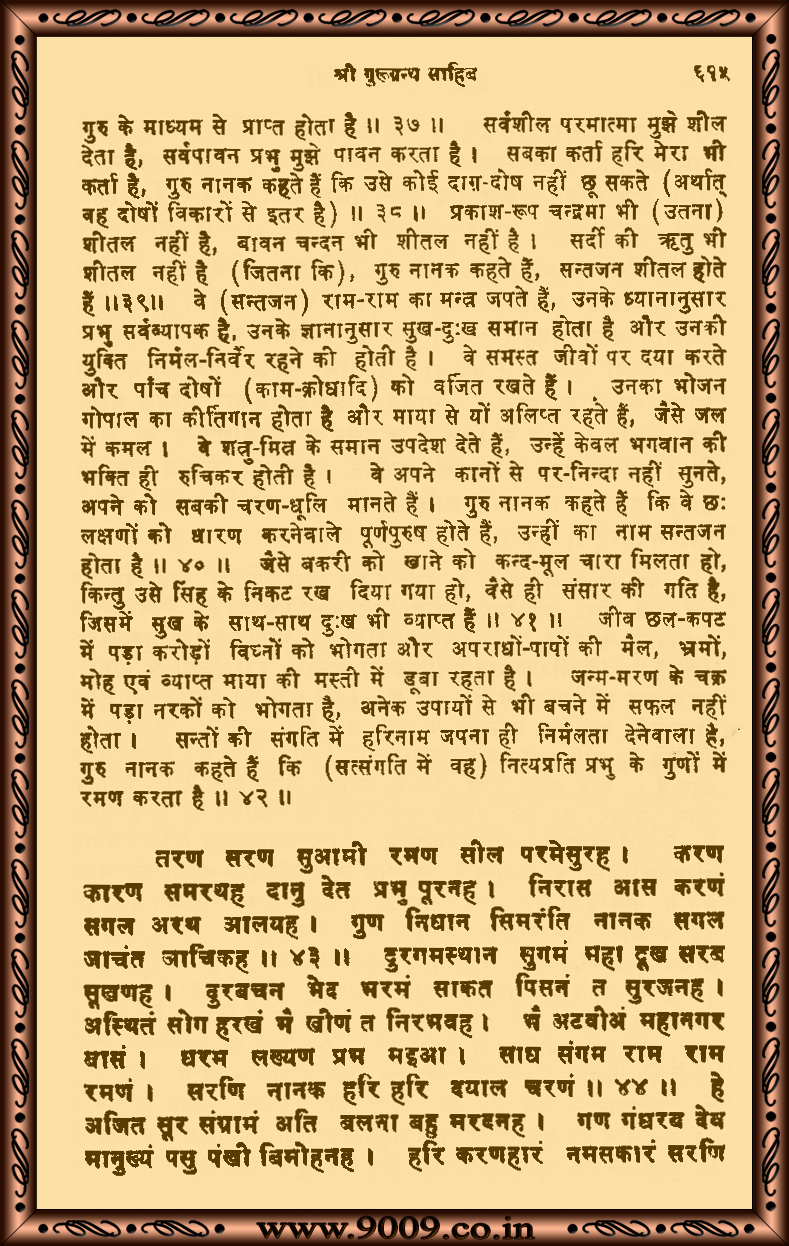 श्री गुरूग्रन्थ साहिब ६१५
गुरु के माध्यम से प्राप्त होता है ॥ ३७ ॥ सर्वशील परमात्मा मुझे शील
देता है, सर्वपावन प्रभु मुझे पावन करता है । सबका कर्ता हरि मेरा भी
कर्ता है, गुरु नानक कहते हैं कि उसे कोई दाग़-दोष नहीं छू सकते (अर्थात्
वह दोषों विकारों से इतर है) ॥ ३८ ॥ प्रकाश-रूप चन्द्रमा भी (उतना)
शीतल नहीं है, बावन चन्दन भी शीतल नहीं है । सर्दी की ऋतु भी
शीतल नहीं है (जितना कि), गुरु नानक कहते हैं, सन्तजन शीतल होते
हैं ॥३९॥ वे (सन्तजन) राम-राम का मन्त्र जपते हैं, उनके ध्यानानुसार
प्रभु सर्वव्यापक है, उनके ज्ञानानुसार सुख-दुःख समान होता है और उनकी
युक्ति निर्मल-निर्वैर रहने की होती है । वे समस्त जीवों पर दया करते
और पाँच दोषों (काम-क्रोधादि) को वर्जित रखते हैं । उनका भोजन
गोपाल का कीर्तिगान होता है और माया से यों अलिप्त रहते हैं, जैसे जल
में कमल । वे शत्रु-मित्र के समान उपदेश देते हैं, उन्हें केवल भगवान की
भक्ति ही रुचिकर होती है । वे अपने कानों से पर-निन्दा नहीं सुनते,
अपने को सबकी चरण-धूलि मानते हैं । गुरु नानक कहते हैं कि वे छः
लक्षणों को धारण करनेवाले पूर्णपुरुष होते हैं, उन्हीं का नाम सन्तजन
होता है ॥ ४० ॥ जैसे बकरी को खाने को कन्द-मूल चारा मिलता हो,
किन्तु उसे सिंह के निकट रख दिया गया हो, वैसे ही संसार की गति है,
जिसमें सुख के साथ-साथ दुःख भी व्याप्त हैं ॥ ४१ ॥ जीव छल-कपट
में पड़ा करोड़ों विघ्नों को भोगता और अपराधों-पापों की मैल, भ्रमों,
मोह एवं व्याप्त माया की मस्ती में डूबा रहता है । जन्म-मरण के चक्र
में पड़ा नरकों को भोगता है, अनेक उपायों से भी बचने में सफल नहीं
होता । सन्तों की संगति में हरिनाम जपना ही निर्मलता देनेवाला है,
गुरु नानक कहते हैं कि (सत्संगति में वह) नित्यप्रति प्रभु के गुणों में
रमण करता है ॥ ४२ ॥
तरण सरण सुआमी रमण सील परमेसुरह । करण
कारण समरथह दानु देत प्रभु पूरनह । निरास आस करणं
सगल अरथ आलयह । गुण निधान सिमरंति नानक सगल
जाचंत जाचिकह ॥ ४३ ॥ दुरगमस्थान सुगमं महा दूख सरब
सूखणह । दुरबचन भेद भरमं साकत पिसनं त सुरजनह ।
असथितं सोग हरखं भै खीणं त निरभवह । भै अटवीअं महानगर
बासं । धरम लख्यण प्रभ मइआ । साध संगम राम राम
रमणं । सरणि नानक हरि हरि दयाल चरणं ॥ ४४ ॥ हे
अजित सूर संग्रामं अति बलना बहु मरदनह । गण गंधरब देव
मानुख्यं पसु पंखी बिमोहनह । हरि करणहारं नमसकारं सरणि
www.9009.co.in